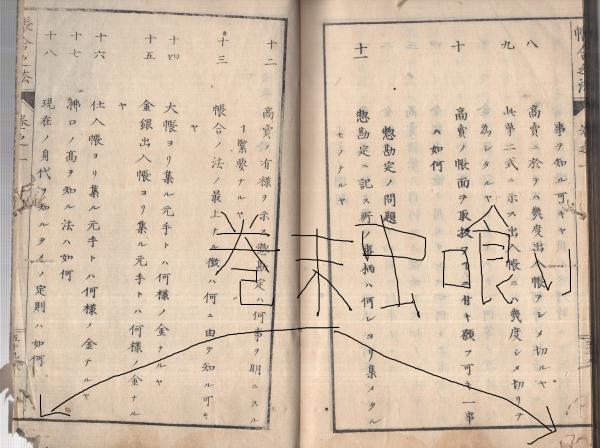 事ヲ知ル可キヤ
八 商賣ニ於テハ幾度出入帳ヲシメ切ルヤ
九 此第二式ニ示ス出入帳ニハ幾度シメ切リヲ
為シタルヤ
十 商賣ノ帳面ヲ取扱フニ
可キ一事
ハ如何
惣勘定ノ問題
十一 惣勘定ニ記ス所ノ事柄ハ何レヨリ集メタル
モノナルヤ
十二 商賣ノ有様ヲ示ス惣勘定ハ何事ヲ明ニスル
ニ緊要ナルヤ
十三 帳合ノ法ノ最上ナル徴ハ何ニ由テ知ル可キ
ヤ
十四 大帳ヨリ集ル元手トハ何様ノ金ナルヤ
十五 金銀出入帳ヨリ集ル元手トハ何様ノ金ナル
ヤ
十六 仕入帳ヨリ集ル元手トハ何様ノ金ナルヤ
十七 拂口ノ高ヲ知ル法ハ如何
十八 現在ノ身代ヲ知ルタメノ定則ハ如何
帳合之法 巻之一
巻末虫喰り